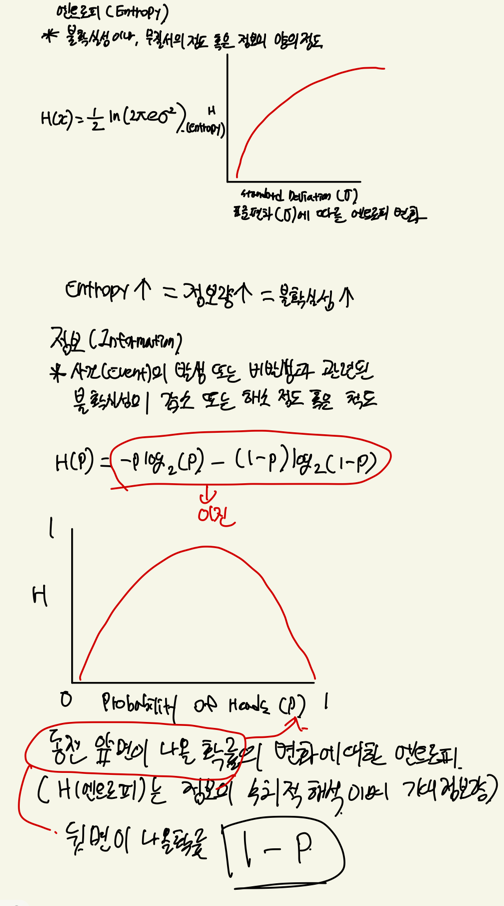 엔트로피 (Entropy)
* 불확실성이나, 무질서의 정도 혹은 정보의 양의 정도
H(x) = 1/2 ln(2πeσ²)
H
(entropy)
Standard Deviation (σ)
표준편차(σ)에 따른 엔트로피 변화
Entropy ↑ = 정보량 ↑ = 불확실성 ↑
정보 (Information)
* 사건(Event)의 발생 또는 미발생과 관련된
불확실성의 감소 또는 해소 정도 혹은 척도
H(P) = -p log₂(P) - (1-P) log₂(1-P)
이진
1
H
0 Probability of Heads (P) 1
동전 앞면이 나올 확률의 변화에 대한 엔트로피.
(H(엔트로피)는 정보의 수치적 해석이며 기대정보량)
뒷면이 나올확률 1-P